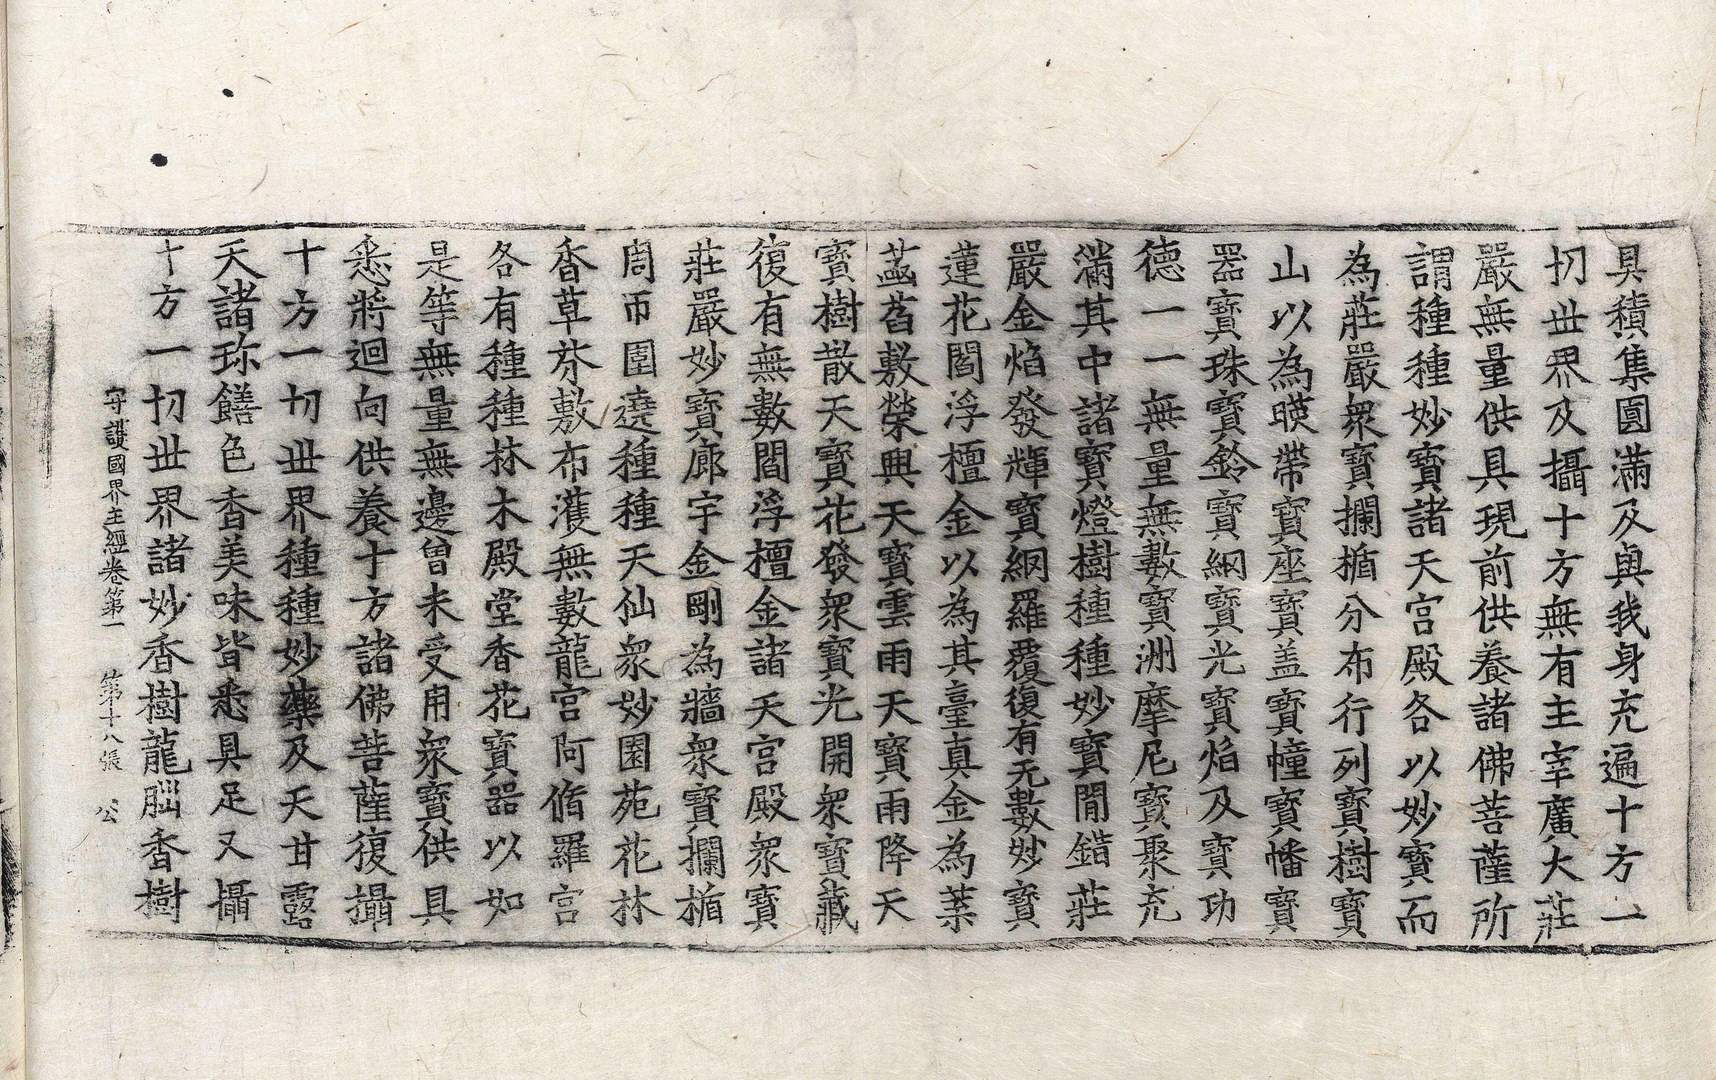 具積集圓滿及與我身充遍十方一
切世界及攝十方無有主宰廣大莊
嚴無量供具現前供養諸佛菩薩所
謂種種妙寶諸天宮殿各以妙寶而
為莊嚴衆寶攔楯分布行列寶樹寶
山以為暎帶寶座寶盖寶幢寶幡寶
器寶珠寶鈴寶網寶光寶焰及寶功
德一一無量無數寶洲摩尼寶聚充
滿其中諸寶燈樹種種妙寶閒錯莊
嚴金焰發輝寶網羅覆復有无數妙寶
蓮花閻浮檀金以為其臺真金為葉
菡萏敷榮興天寶雲雨天寶雨降天
寶樹散天寶花發衆寶光開衆寶藏
復有無數閻浮檀金諸天宮殿衆寶
莊嚴妙寶廊宇金剛為牆衆寶攔楯
周帀圍遶種種天仙衆妙園苑花林
香草芬敷布濩無數龍宮阿脩羅宮
各有種種林木殿堂香花寶器以如
是等無量無邊曾未受用衆寶供具
悉將迴向供養十方諸佛菩薩復攝
十方一切世界種種妙藥及天甘露
天諸珎饍色香美味皆悉具足又攝
十方一切世界諸妙香樹龍腦香樹
守護國界主經卷第一 第十八張 公